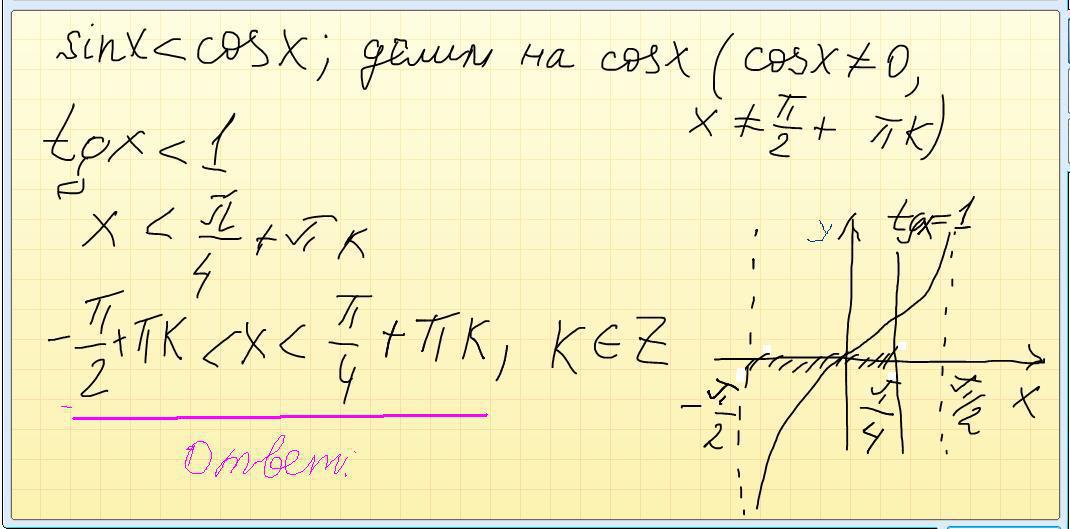 sinx < cosx; делим на cosx (cosx ≠ 0,
x ≠ π/2 + πk)
tgx < 1
x < π/4 + πk
-π/2 + πk < x < π/4 + πk, k ∈ Z
Ответ.
y
tgx=1
-π/2
π/4
π/2
x